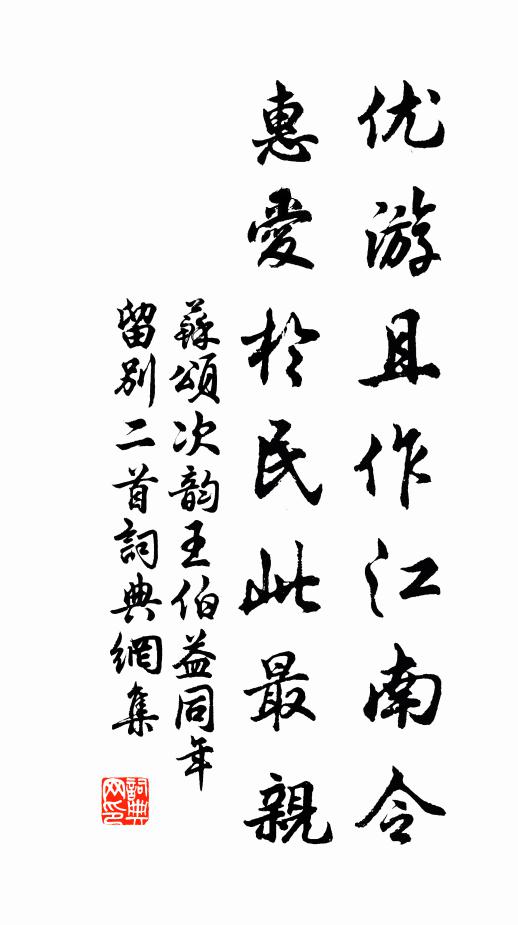 优游且作江南令
惠愛於民此最親
蘇頌次韵王伯益同年
留别二首詞典網集
詞典网印